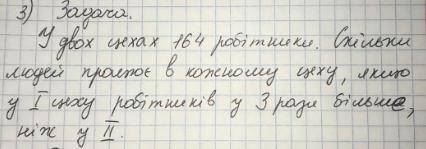 3) Задача.
У двох цехах 164 робітники. Скільки
людей працює в кожному цеху, якщо
у I цеху робітників у 3 рази більше,
ніж у II.